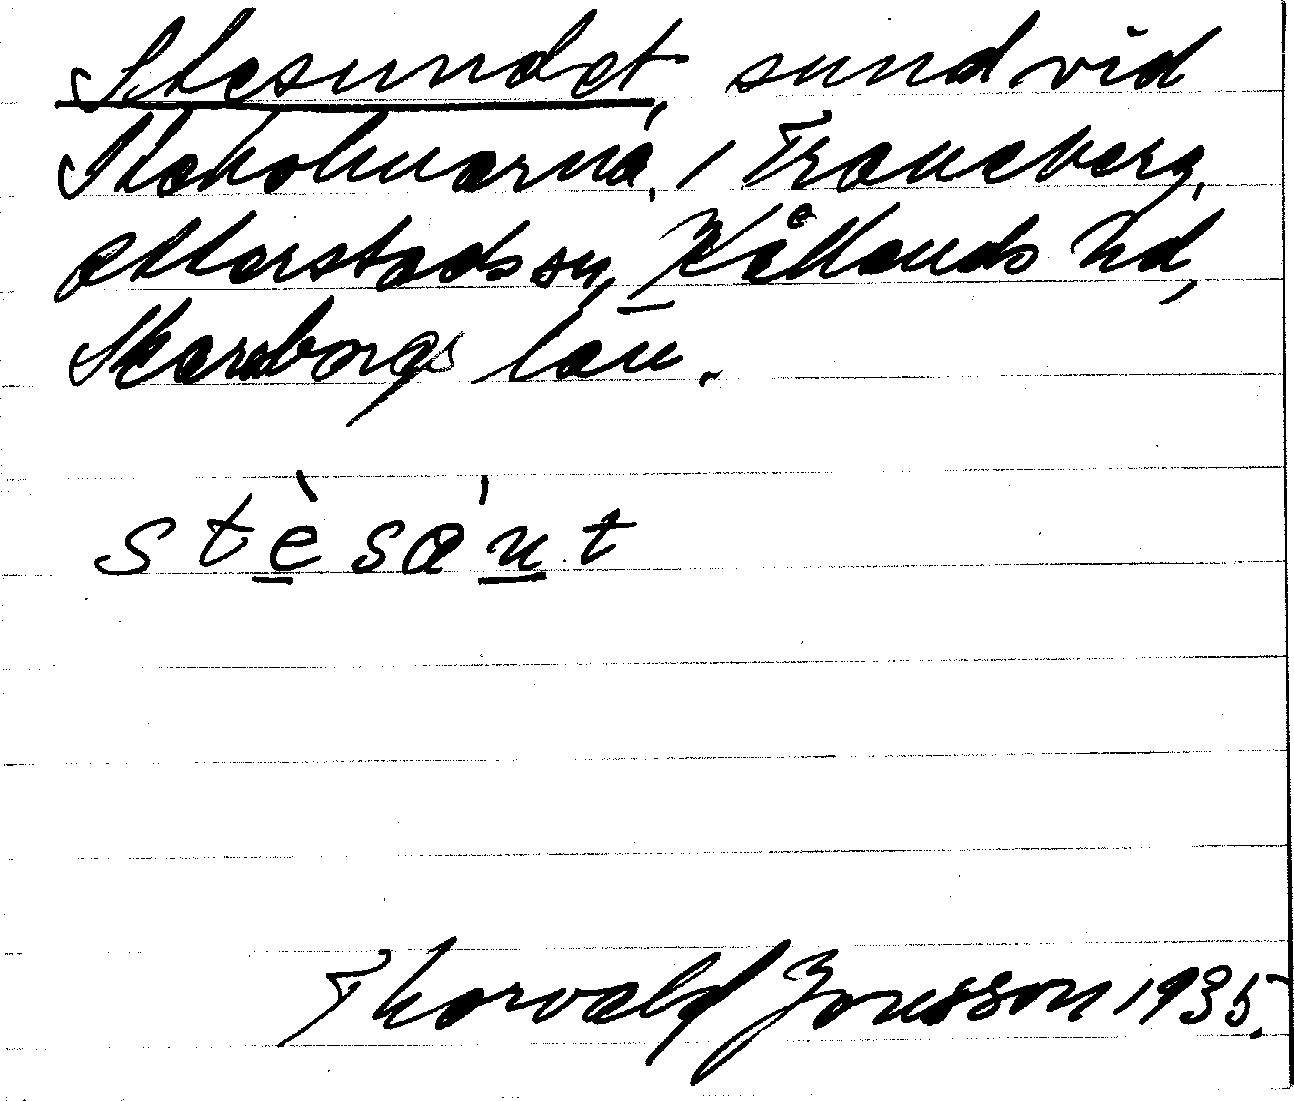 Stesundet, sund vid
Steholmarna, i Traneberg,
Otterstads sn, Kållands hd,
Skaraborgs län.
stèsəńt
Thorvald Jonsson 1935.